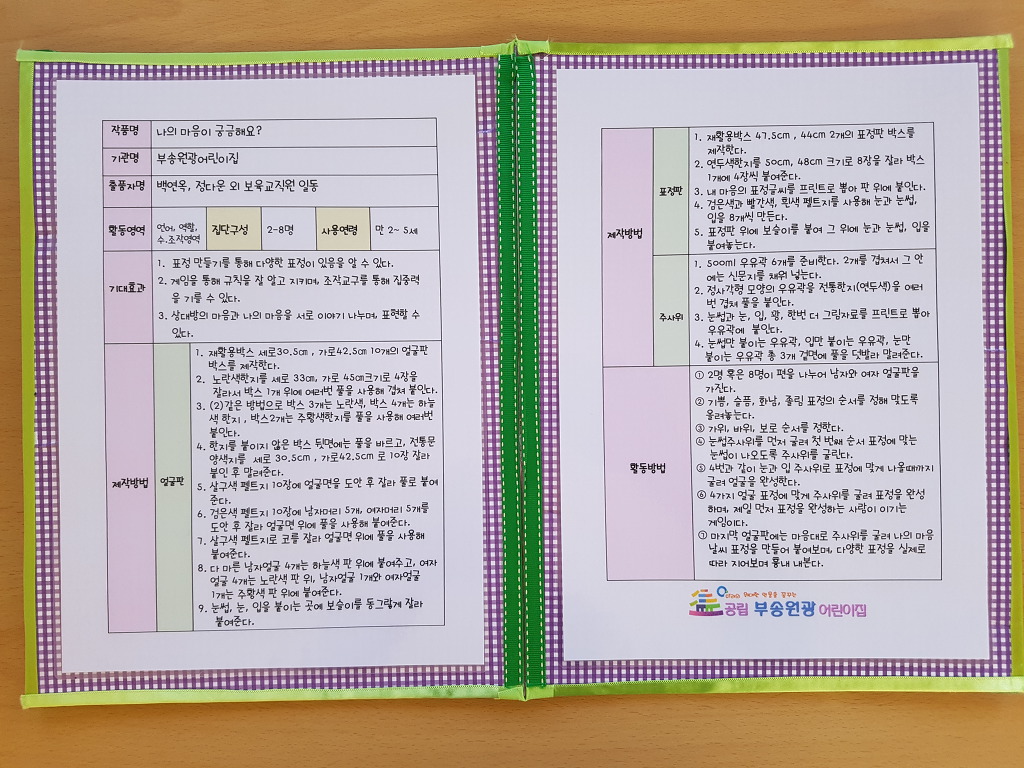 작품명 나의 마음이 궁금해요?
기관명 부송원광어린이집
출품자명 백연옥, 정다운 외 보육교직원 일동
활동영역 언어, 역할, 수.조작영역 집단구성 2-8명 사용연령 만 2~ 5세
기대효과
1. 표정 만들기를 통해 다양한 표정이 있음을 알 수 있다.
2. 게임을 통해 규칙을 잘 알고 지키며, 조작교구를 통해 집중력
을 기를 수 있다.
3. 상대방의 마음과 나의 마음을 서로 이야기 나누며, 표현할 수
있다.
제작방법
얼굴판
1. 재활용박스 세로30.5cm , 가로42.5cm 10개의 얼굴판
박스를 제작한다.
2. 노란색한지를 세로 33cm, 가로 45cm크기로 4장을
잘라서 박스 1개 위에 여러번 풀을 사용해 겹쳐 붙인다.
3. (2)같은 방법으로 박스 3개는 노란색, 박스 4개는 하늘
색 한지 , 박스2개는 주황색한지를 풀을 사용해 여러번
붙인다.
4. 한지를 붙이지 않은 박스 뒷면에는 풀을 바르고, 전통문
양색지를 세로 30.5cm , 가로42.5cm 로 10장 잘라
붙인 후 말려준다.
5. 살구색 펠트지 10장에 얼굴면을 도안 후 잘라 풀로 붙여
준다.
6. 검은색 펠트지 10장에 남자머리 5개, 여자머리 5개를
도안 후 잘라 얼굴면 위에 풀을 사용해 붙여준다.
7. 살구색 펠트지로 코를 잘라 얼굴면 위에 풀을 사용해
붙여준다.
8. 다 마른 남자얼굴 4개는 하늘색 판 위에 붙여주고, 여자
얼굴 4개는 노란색 판 위, 남자얼굴 1개와 여자얼굴
1개는 주황색 판 위에 붙여준다.
9. 눈썹, 눈, 입을 붙이는 곳에 보슬이를 동그랗게 잘라
붙여준다.
제작방법
표정판
1. 재활용박스 47.5cm , 44cm 2개의 표정판 박스를
제작한다.
2. 연두색한지를 50cm, 48cm 크기로 8장을 잘라 박스
1개에 4장씩 붙여준다.
3. 내 마음의 표정글씨를 프린트로 뽑아 판 위에 붙인다.
4. 검은색과 빨간색, 흰색 펠트지를 사용해 눈과 눈썹,
입을 8개씩 만든다.
5. 표정판 위에 보슬이를 붙여 그 위에 눈과 눈썹, 입을
붙여놓는다.
주사위
1. 500ml 우유곽 6개를 준비한다. 2개를 겹쳐서 그 안
에는 신문지를 채워 넣는다.
2. 정사각형 모양의 우유곽을 전통한지(연두색)을 여러
번 겹쳐 풀을 붙인다.
3. 눈썹과 눈, 입, 꽝, 한번 더 그림자료를 프린트로 뽑아
우유곽에 붙인다.
4. 눈썹만 붙이는 우유곽, 입만 붙이는 우유곽, 눈만
붙이는 우유곽 총 3개 겉면에 풀을 덧발라 말려준다.
활동방법
① 2명 혹은 8명이 편을 나누어 남자와 여자 얼굴판을
가진다.
② 기쁨, 슬픔, 화남, 졸림 표정의 순서를 정해 맞도록
올려놓는다.
③ 가위, 바위, 보로 순서를 정한다.
④ 눈썹주사위를 먼저 굴려 첫 번째 순서 표정에 맞는
눈썹이 나오도록 주사위를 굴린다.
⑤ 4번과 같이 눈과 입 주사위로 표정에 맞게 나올때까지
굴려 얼굴을 완성한다.
⑥ 4가지 얼굴 표정에 맞게 주사위를 굴려 표정을 완성
하며, 제일 먼저 표정을 완성하는 사람이 이기는
게임이다.
⑦ 마지막 얼굴판에는 마음대로 주사위를 굴려 나의 마음
날씨 표정을 만들어 붙여보며, 다양한 표정을 실제로
따라 지어보며 흉내 내본다.
공립 부송원광 어린이집